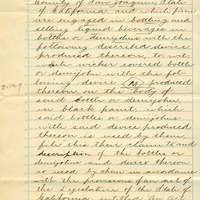 County of San Joaquin State
of California and which firm
are engaged in bottling and
selling liquid beverages in
bottles or demijohns with the
following described device
produced thereon, to wit:
wicker covered bottle
or demijohn with the fol-
lowing device (N) produced
thereon on the body of
said bottle or demijohn
in black paint, which
said bottles or demijohns
with said device produced
thereon is used by them
file this their claim and
description of the bottles or
demijohns and device thereon
so used by them in accordance
with the provisions of an act of
the Legislature of the State of
California entitled An Act